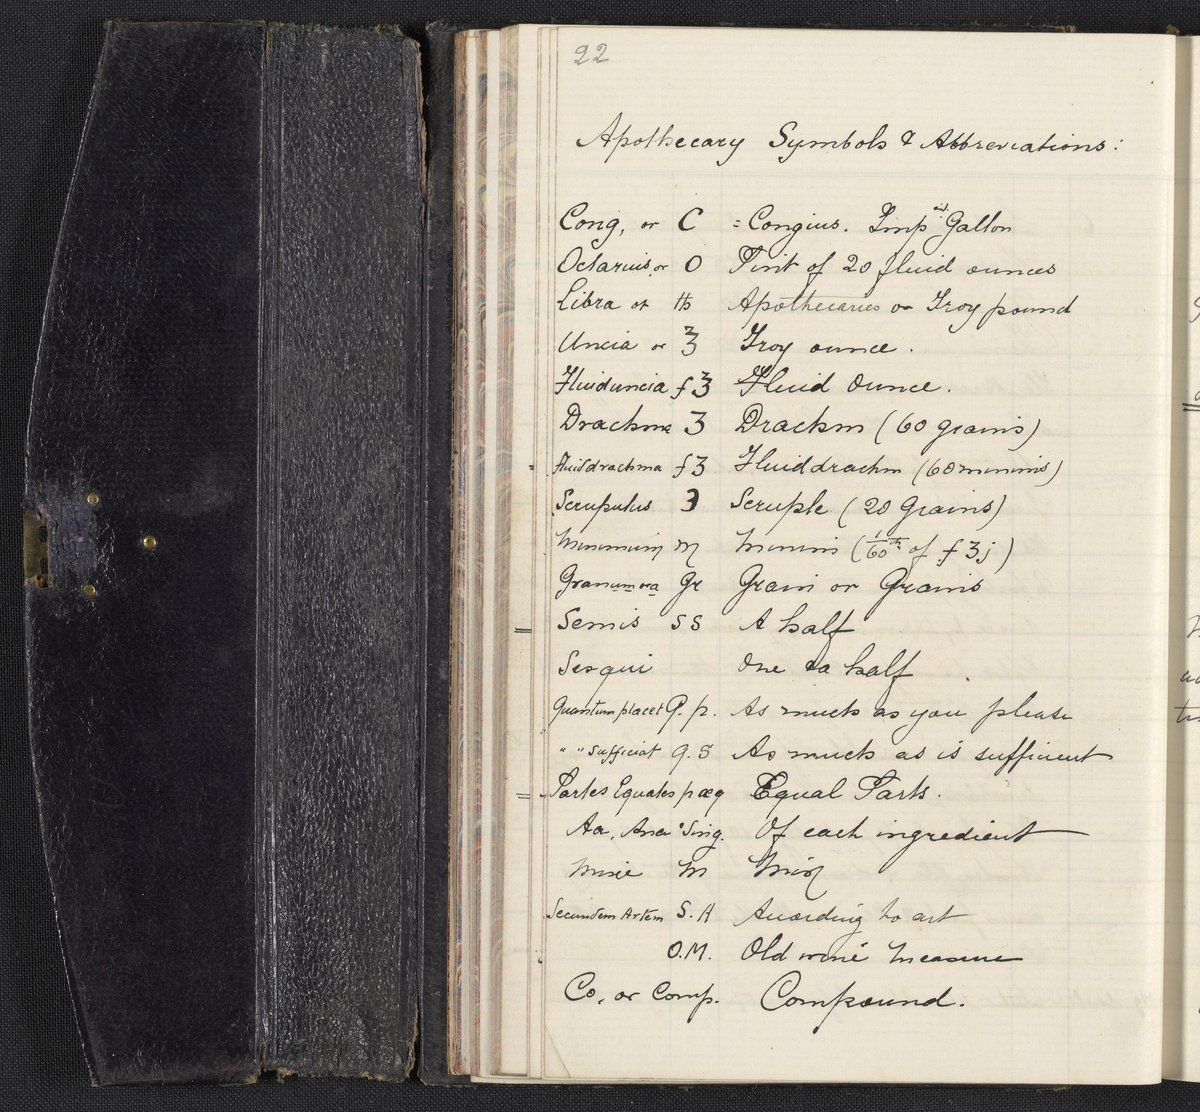 22
Apothecary Symbols & Abbreviations:
Cong, or C = Congius. Imp^ial. Gallon
Octarius, or O Pint of 20 fluid ounces
Libra or ℔ Apothecaries or Troy pound
Uncia or ℥ Troy ounce.
Fluiduncia f℥ Fluid Ounce.
Drachma ʒ Drachm (60 grains)
Fluidrachma fʒ Fluiddrachm (60 minims)
Scrupulus ℈ Scruple (20 Grains)
Minimum ♏ Minim (1/60th of fʒj)
Granum or a Gr Grain or Grains
Semis SS A half
Sesqui One & a half
Quantum placet Q. p. As much as you please
" " Sufficiat q. S As much as is sufficient
Partes Equales pæq Equal Parts.
Aa, Ana Sing. Of each ingredient
Misce M Mix
Secundem Artem S. A According to art
O.M. Old wine measure
Co, or Comp. Compound.